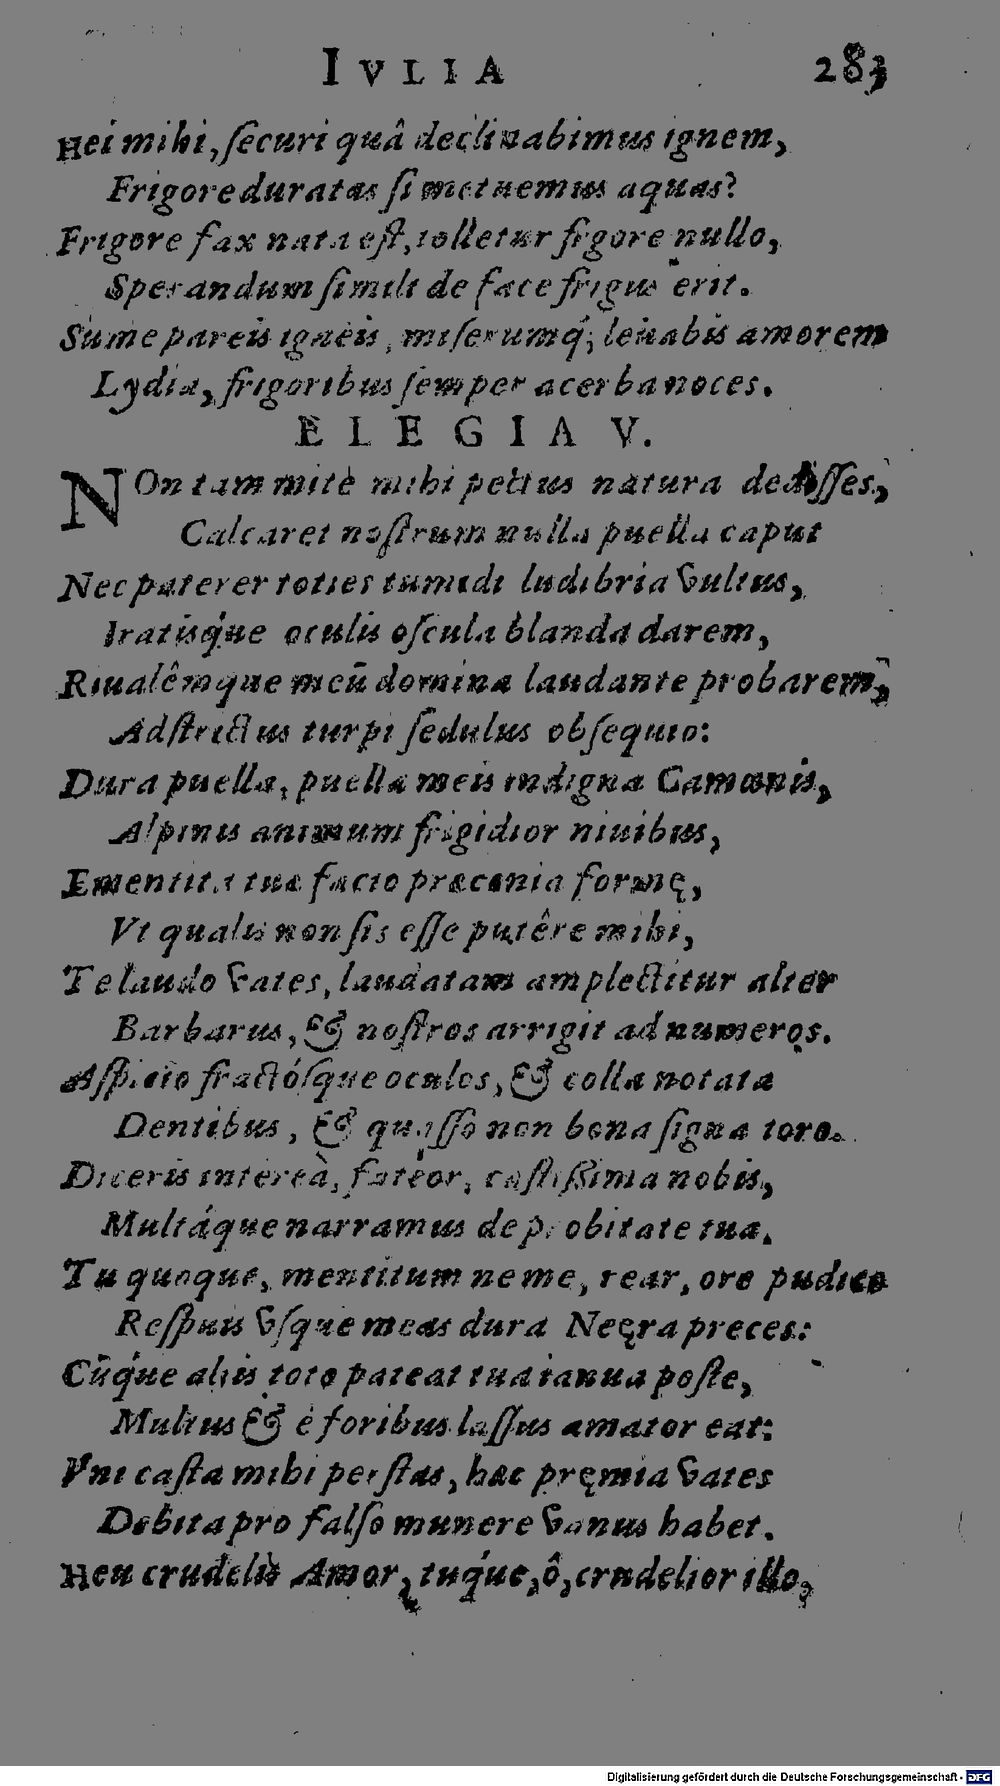 IVLIA 283
Hei mihi, ſecuri quâ declinabimus ignem,
Frigore duratas ſi metuemus aquas?
Frigore fax nata eſt, tolletur frigore nullo,
Sperandum ſimili de face frigus erit.
Sume pareis igneis, miſerumq́; leuabis amorem
Lydia, frigoribus ſemper acerba noces.
ELEGIA V.
NOn tam mitè mihi pectus natura dediſſes,
Calcaret noſtrum nulla puella caput
Nec paterer toties tumidi ludibria vultus,
Iratisq́ue oculis oſcula blanda darem,
Riualêmque meũ domina laudante probarem,
Adſtrictus turpi ſedulus obſequio:
Dura puella, puella meis indigna Camœnis,
Alpinis animum frigidior niuibus,
Ementita tuæ facio præconia formę,
Vt qualis non ſis eſſe putêre mihi,
Te laudo vates, laudatam amplectitur alter
Barbarus, & noſtros arrigit ad numeros.
Aſpicio fractóſque oculos, & colla notata
Dentibus, & quaſſo non bona ſigna toro.
Diceris intereà, fateor, caſtiſſima nobis,
Multáque narramus de probitate tua.
Tu quoque, mentitum ne me, rear, ore pudico
Reſpuis vſque meas dura Neęra preces:
Cũq́ue aliis toto pateat tua ianua poſte,
Multus & è foribus laſſus amator eat:
Vni caſta mihi perſtas, hæc pręmia vates
Debita pro falſo munere vanus habet.
Heu crudelis Amor, tuq́ue, ô, crudelior illo,
Digitalisierung gefördert durch die Deutsche Forschungsgemeinschaft - DFG